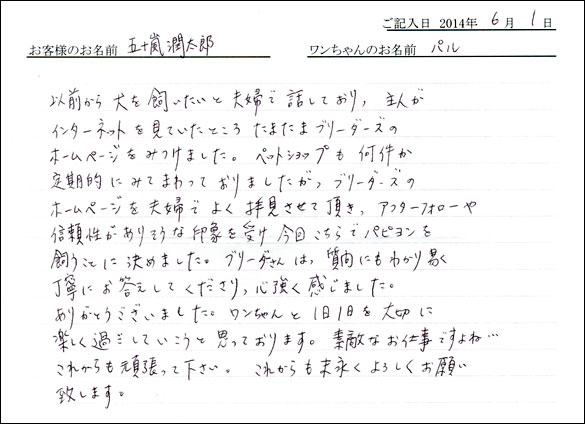 ご記入日 2014年 6月 1日
お客様のお名前 五十嵐 潤太郎 ワンちゃんのお名前 パル
以前から犬を飼いたいと夫婦で話しており、主人が
インターネットを見ていたところたまたまブリーダーズの
ホームページをみつけました。ペットショップも何件か
定期的にみてまわっておりましたが、ブリーダーズの
ホームページを夫婦でよく拝見させて頂き、アフターフォローや
信頼性がありそうな印象を受け今回こちらでパピヨンを
飼うことに決めました。ブリーダさんは、質問にもわかり易く
丁寧にお答えしてくださり、心強く感じました。
ありがとうございました。ワンちゃんと1日1日を大切に
楽しく過ごしていこうと思っております。素敵なお仕事ですよね…
これからも頑張って下さい。これからも末永くよろしくお願い
致します。